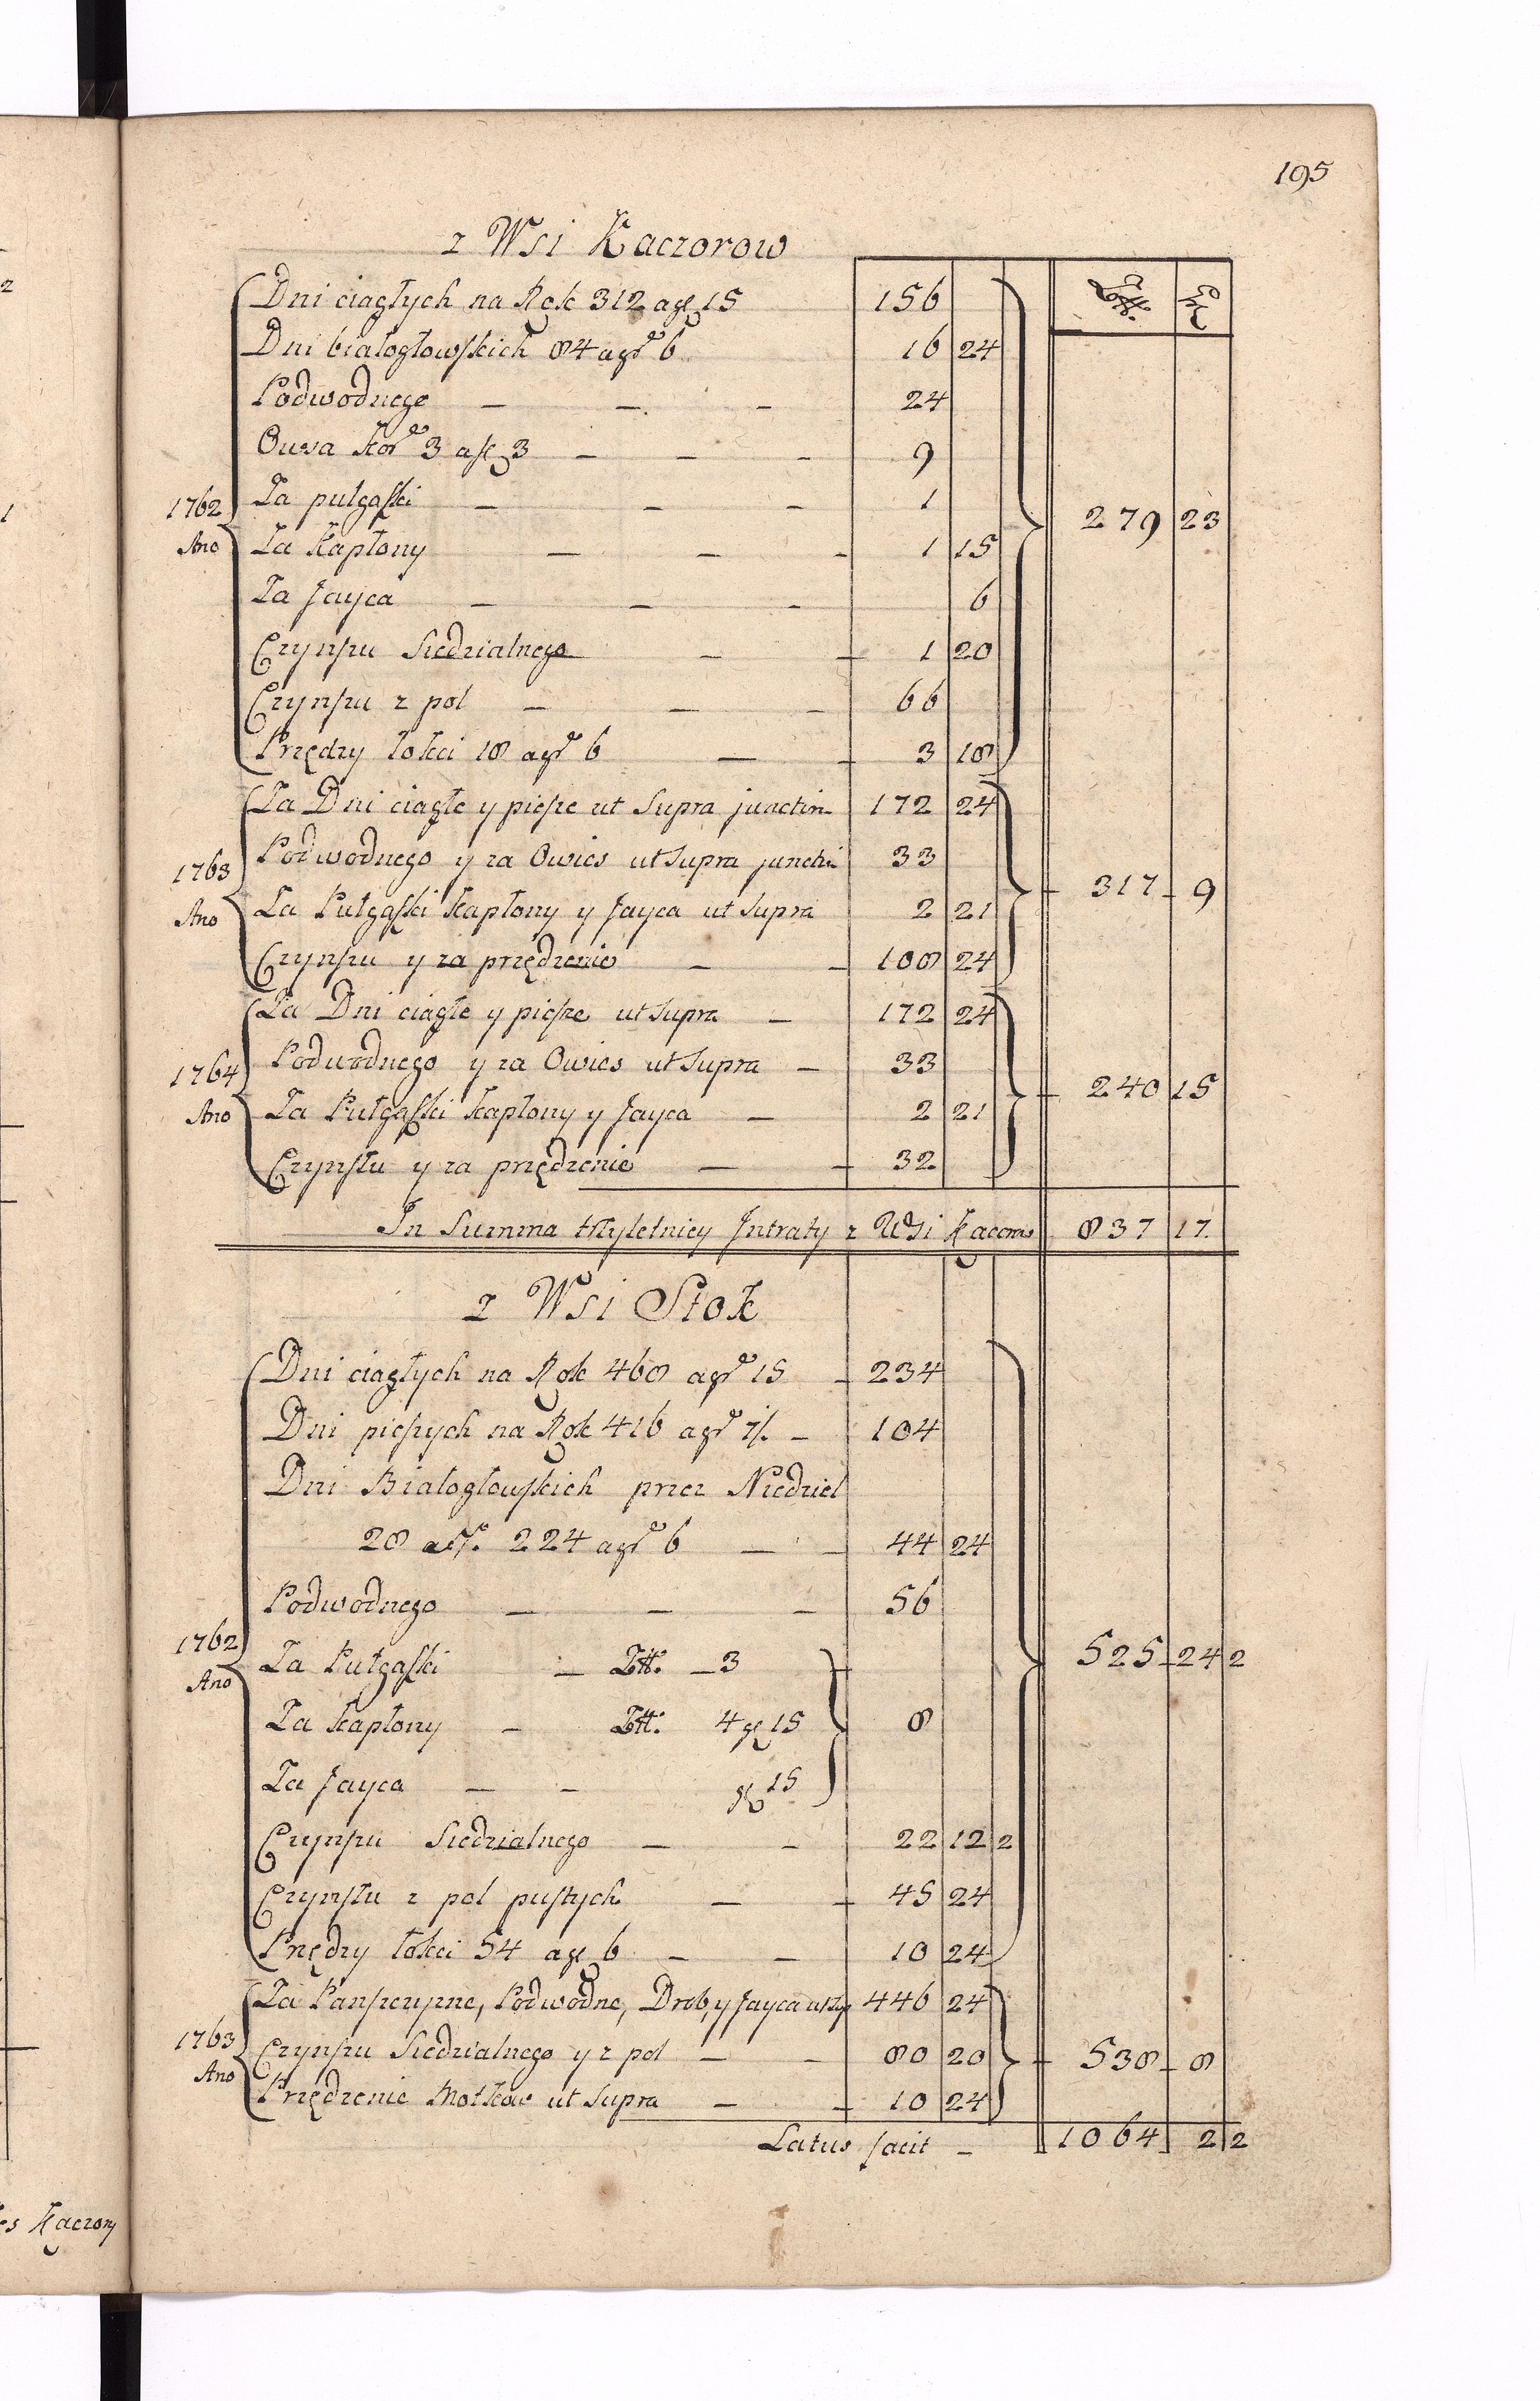 195
z Wsi Kaczorow
Ztt. gr
Dni ciągłych na Rok 312 a gr 15 156
Dni białogłowskich 84 a gr 6 16 24
Podwodnego — — — 24
Owsa kor 3 a zł 3 — — — 9
1762 Za pułgąski — — — 1 279 23
Ano Za kapłony — — — 1 15
Za Jayca — — — 6
Czynszu Siedzialnego — — 1 20
Czynszu z pol — — — 66
Przędzy łokci 18 a gr 6 — — 3 18
Za Dni ciągłe y piesze ut Supra junctim 172 24
1763 Podwodnego y za Owies ut Supra junctim 33
Ano Za Pułgąski kapłony y Jayca ut Supra 2 21 317 9
Czynszu y za przędzenie — — 108 24
Za Dni ciągłe y piesze ut Supra — 172 24
1764 Podwodnego y za Owies ut Supra — 33 240 15
Ano Za Pułgąski kapłony y Jayca — 2 21
Czynszu y za przędzenie — — 32
In Summa trzyletniey Intraty z Wsi Kaczorow 837 17.
z Wsi Stok
Dni ciągłych na Rok 468 a gr 15 — 234
Dni pieszych na Rok 416 a gr 7/. — 104
Dni Białogłowskich przez Niedziel
28 224 a gr 6 — — 44 24
Podwodnego — — — 56
1762 Za Pułgąski — Ztt. — 3 525 24 2
Ano Za kapłony — Ztt. 4 gr 15 8
Za Jayca — — gr 15
Czynszu Siedzialnego — — 22 12 2
Czynszu z pol pustych — — 45 24
Przędzy łokci 54 a gr 6 — — 10 24
Za Panszczyznę, Podwodne, Drob, y Jayca 446 24
1763 Czynszu Siedzialnego y z pol — — 80 20 538 8
Ano Przędzenie Motkow ut Supra — — 10 24
Latus facit — 1064 2 2
es Kaczory